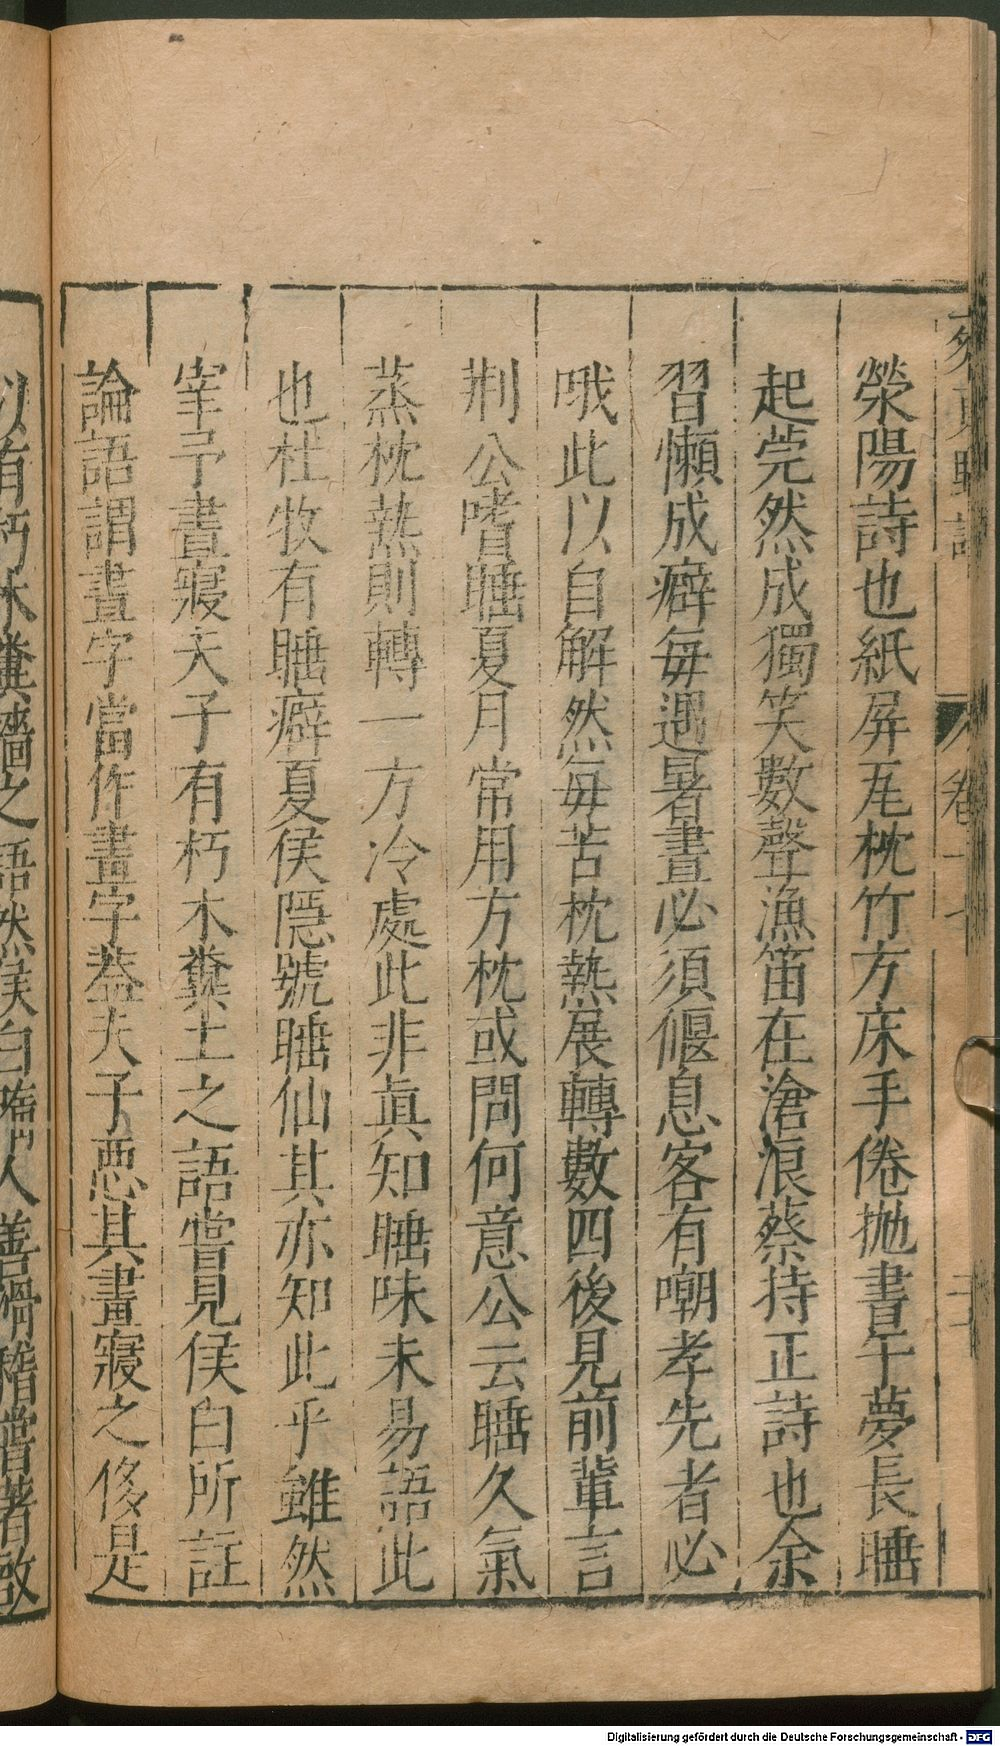 滎陽詩也紙屏瓦枕竹方床手倦抛書午夢長睡
起莞然成獨笑數聲漁笛在滄浪蔡持正詩也余
習懶成癖每遇暑晝必須偃息客有嘲孝先者必
哦此以自解然每苦枕熱展轉數四後見前輩言
荆公嗜睡夏月常用方枕或問何意公云睡久氣
蒸枕熱則轉一方冷處此非真知睡味未易語此
也杜牧有睡癖夏侯隱號睡仙其亦知此乎雖然
宰予晝寢夫子有朽木糞土之語嘗見侯白所註
論語謂晝字當作畫字葢夫子惡其畫寢之侈是
以有朽木糞牆之語然侯白隋人善滑稽嘗著啓
Digitalisierung gefördert durch die Deutsche Forschungsgemeinschaft - DFG